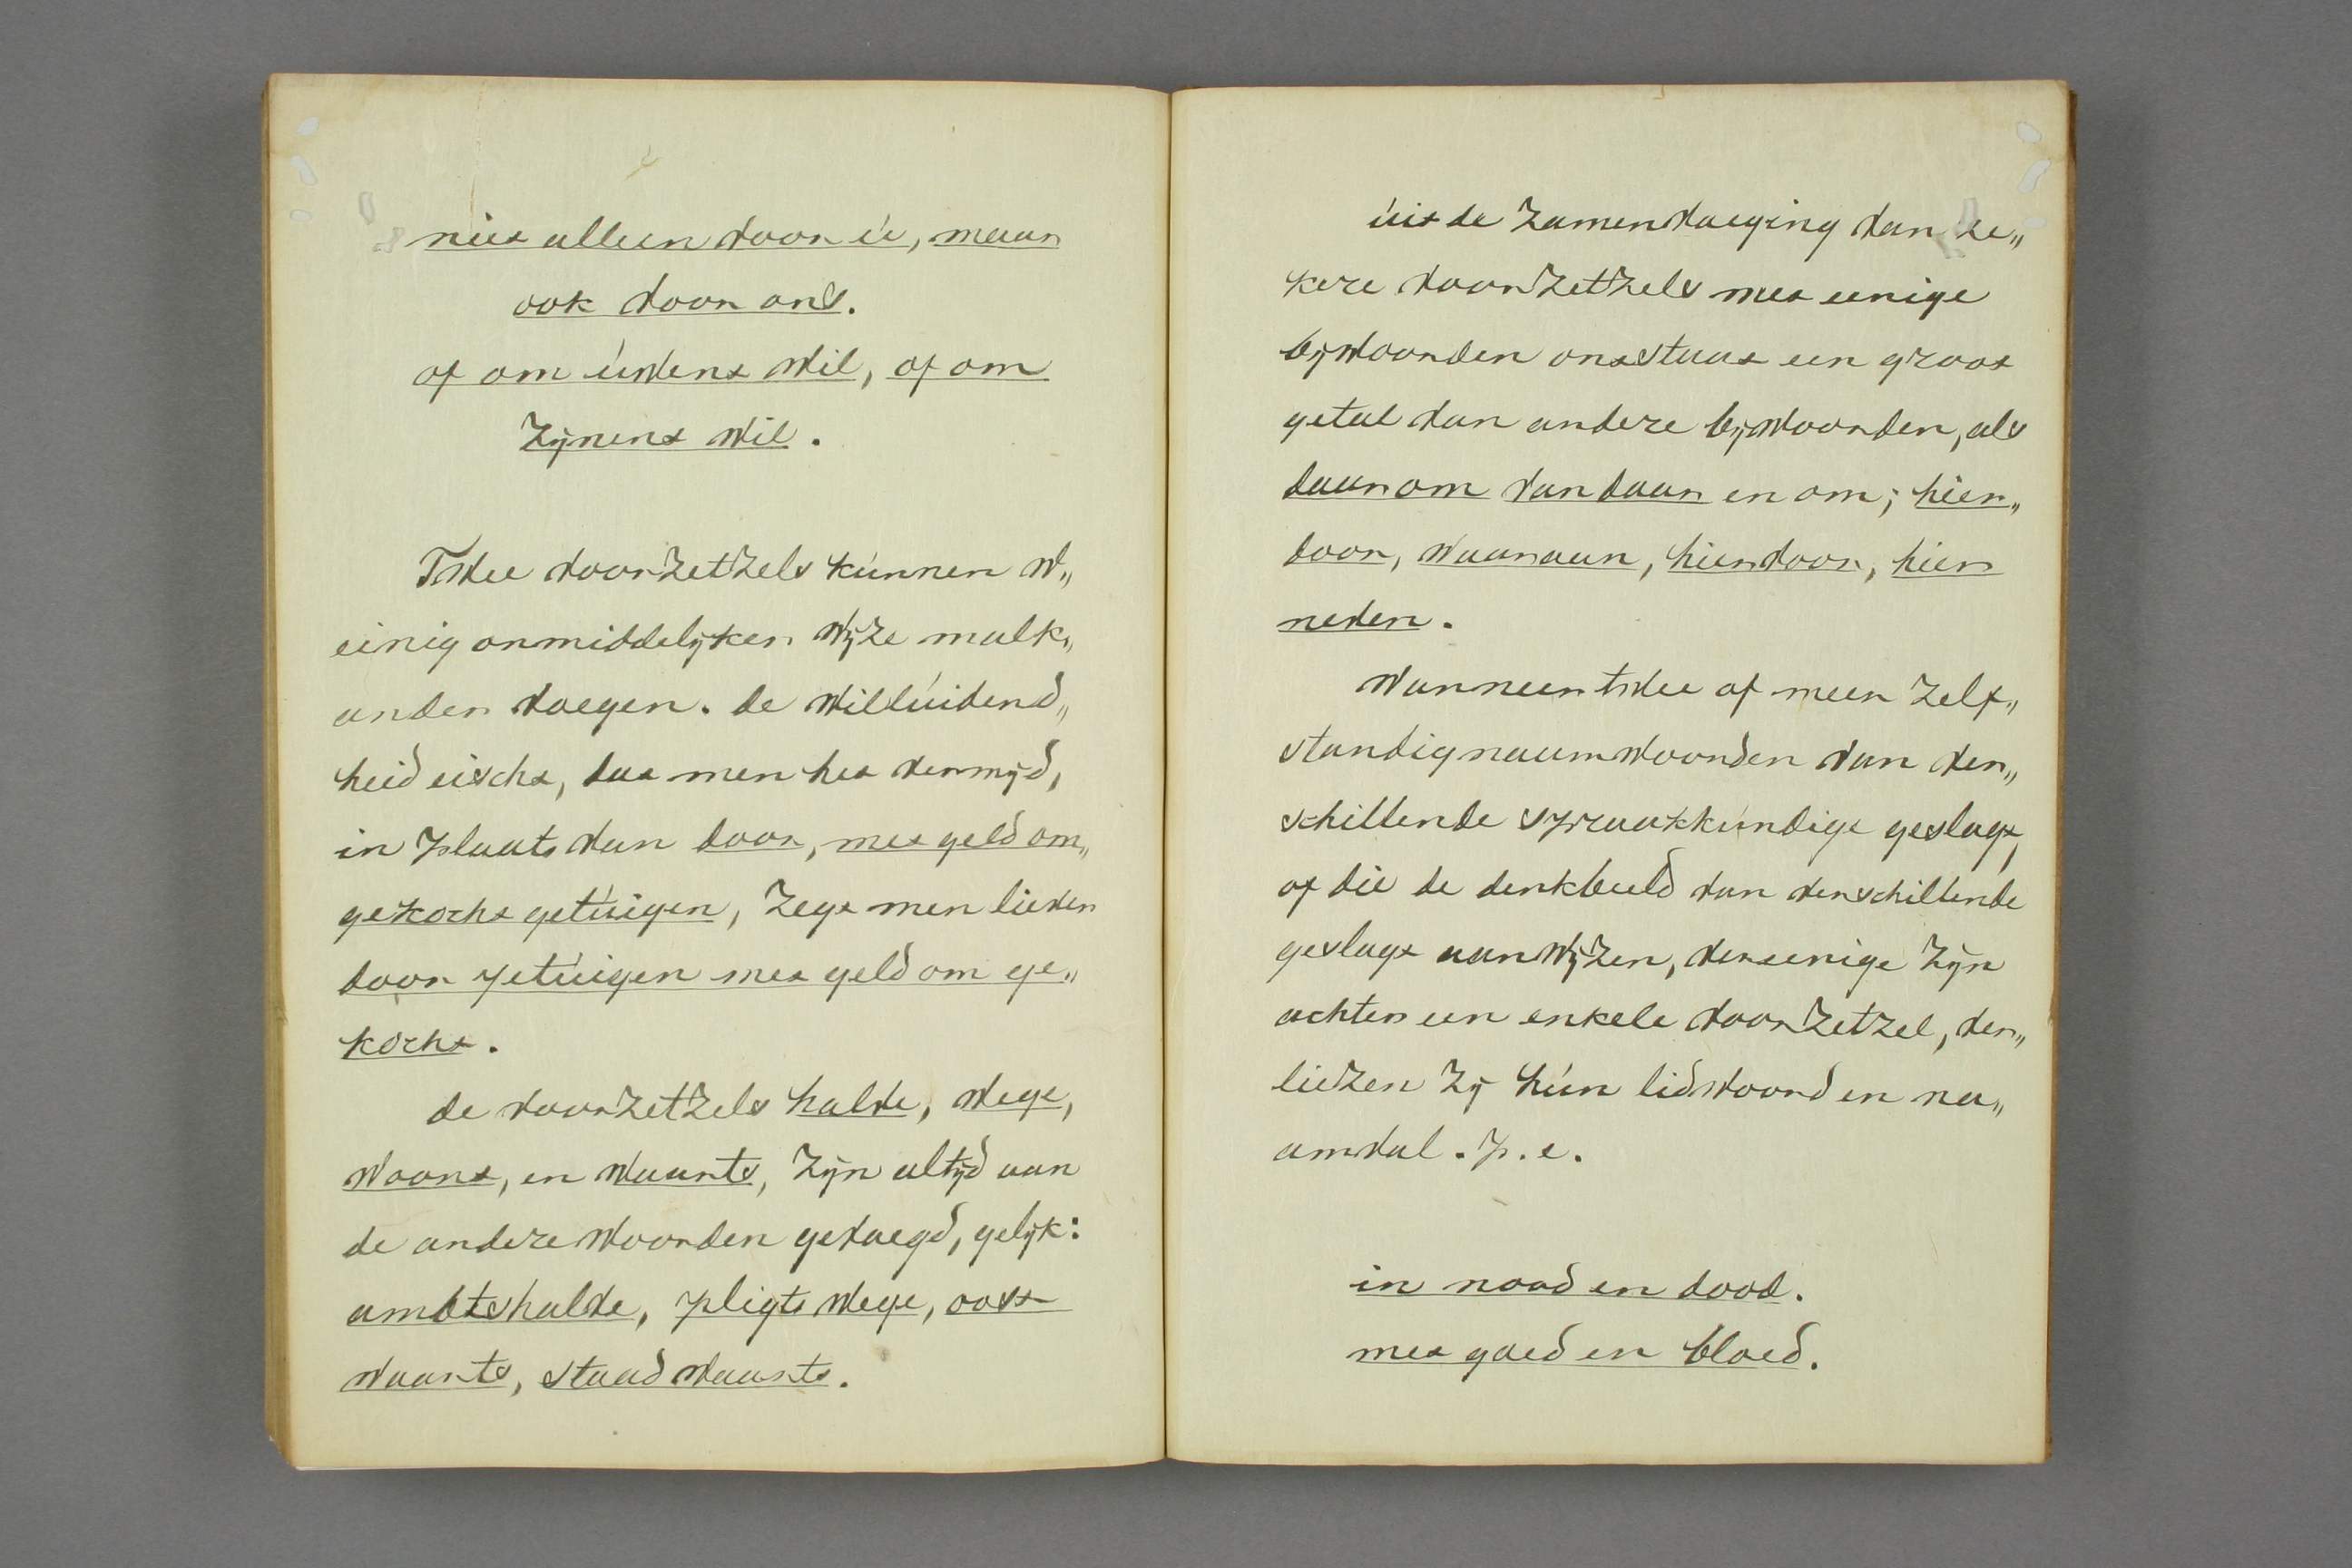 niet alleen voor ú, maar
ook voor ons.
of om úwent wil, of om
zijnent wil.
Twee voorzetzels kúnnen w„
einig onmiddelijker wijze malk„
ander voegen. de wellúidend„
heid eischt, dat men het vermijd,
in plaats van door, met geld om„
gekocht getúigen, zegt men liever
door getúigen met geld om ge„
kocht.
de voorzetzels halve, wege,
woont, en waarts, zijn altijd aan
de andere woorden gevoegd, gelijk:
ambtshalve, pligts wege, oost
waarts, staad waarts.
úit de zamenvoeging van ze„
kere voorzetzels met eenige
bijwoorden ontstaat een groot
getal van andere bijwoorden, als
daarom van daar en om; hier„
door, waaraan, hiervoor, hier
neven.
Wanneer twee of meer zelf„
standig naamwoorden van ver„
schillende spraakkúndige geslagt,
of die de denkbeeld van verschillende
geslagt aanwijzen, vereenige zijn
achter een enkele voorzetzel, ver„
liezen zij hún lidwoord en na„
amval. p. e.
in nood en dood.
met goed en bloed.